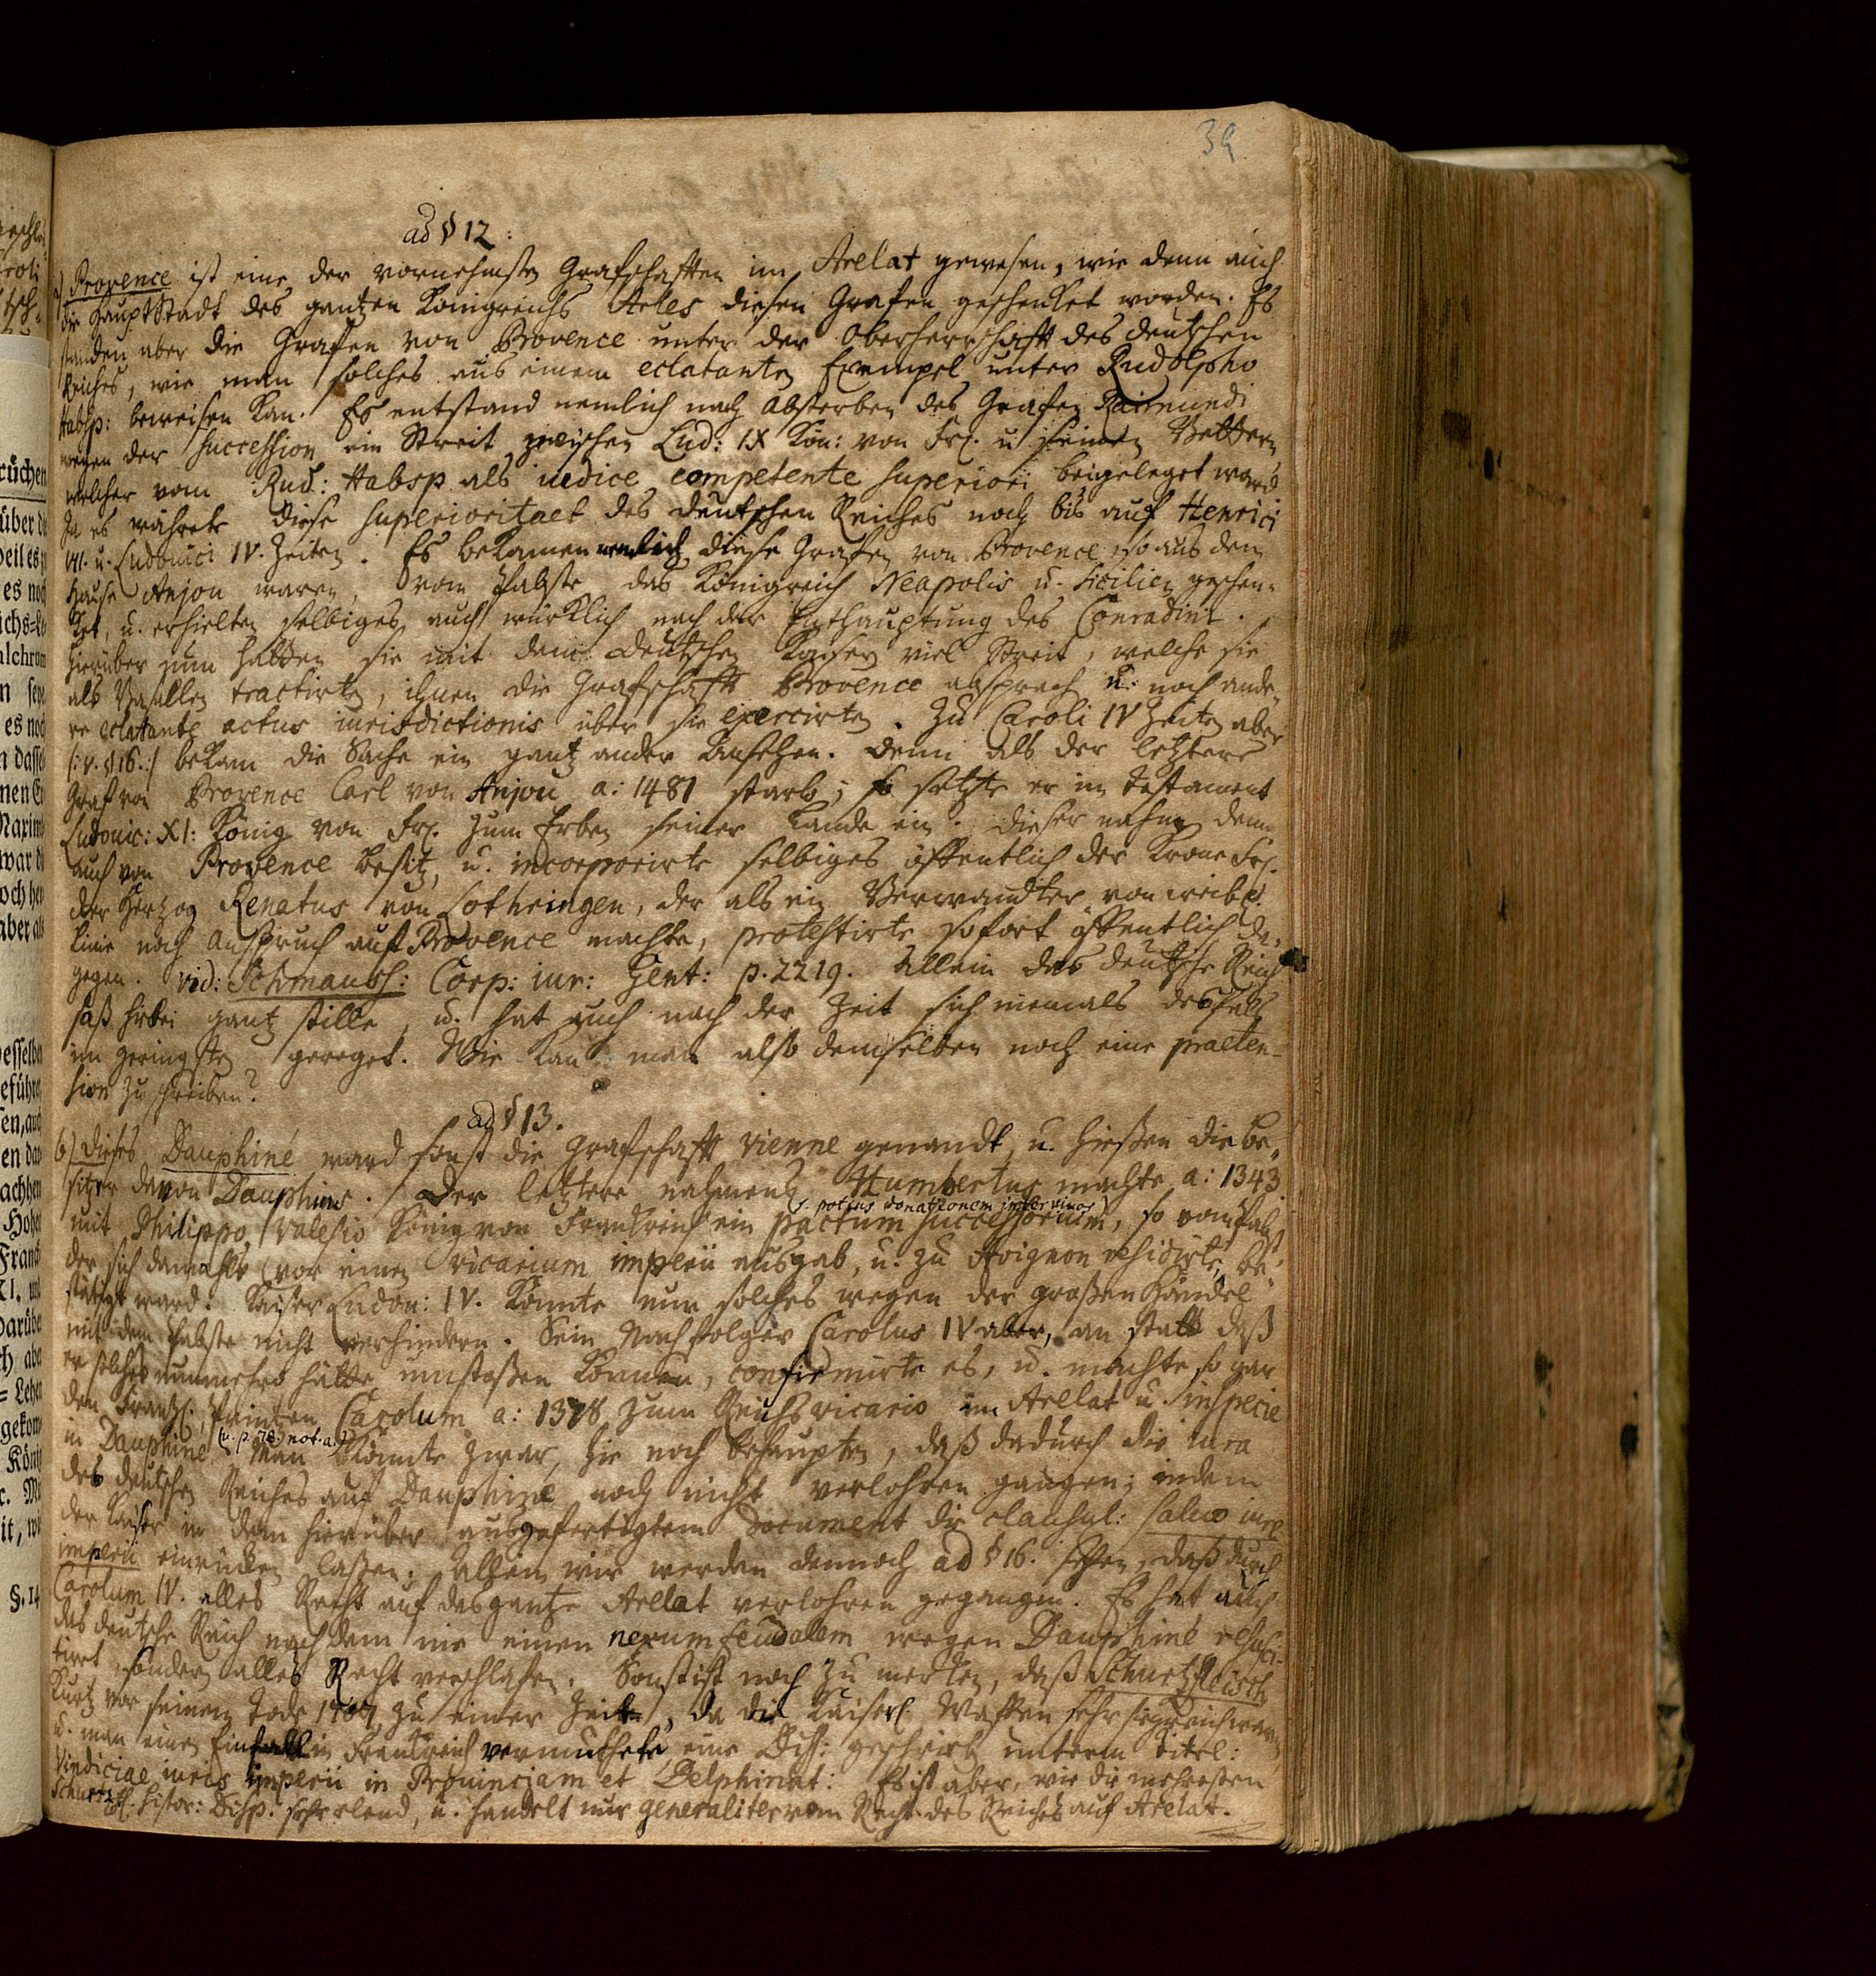 39
ad § 12:
a) Provence ist eine der vornehmsten Grafschafften im Arelat gewesen, wie denn auch
die HauptStadt des gantzen Königreichs Arles diesen Grafen geschencket worden. Es
standen aber die Grafen von Provence unter der Oberherrschafft des deutschen
Reiches, wie man solches aus einem eclatanten Exempel unter Rudolpho
Habsp: beweisen kan. Es entstand nemlich nach Absterben des Grafen Raimundi
wegen der succession ein Streit zwischen Lud: IX Kön: von Frc. u. seinen Vettern,
welcher vom Rud: Habsp als iudice competente superiori beigeleget ward
Ja es währete diese superioritaet des deutschen Reiches noch bis auf Henrici
VII. u. Ludovici IV. Zeiten. Es bekamen nemlich diese Grafen von Provence, so aus dem
Hause Anjou waren, vom Pabste das Königreich Neapolis u. Sicilien geschen-
ket, u. erhielten selbiges auch würklich nach der Enthauptung des Conradini.
Hierüber nun hatten sie mit dem deutschen Kayser viel Streit, welche sie
als Vasallen tractirten, ihnen die Grafschafft Provence absprach u. noch ande-
re eclatante actus iurisdictionis über sie exercirten. Zu Caroli IV Zeiten aber
(: v. § 16. :) bekam die Sache ein gantz ander Ansehen. Denn als der letztere
Graf von Provence Carl von Anjou a: 1481 starb; so setzte er im Testament
Ludovic: XI: König von Frc. zum Erben seiner Lande ein. Dieser nahm denn
auch von Provence besitz, u. incorporirte selbiges öffentlich der Krone Frc.
der Hertzog Renatus von Lothringen, der als ein Verwandter von weibl.
Linie noch Anspruch auf Provence machte, protestirte sofort öffentlich da-
gegen. vid: Schmauss: Corp: iur: Gent: p. 2219. Allein das deutsche Reich
saß hirbei gantz stille, u. hat auch nach der Zeit sich niemals desfalls
im geringsten gereget. Wie kan man also demselben noch eine praeten-
sion zu schreiben?
ad § 13.
b) Dieses Dauphiné ward sonst die Grafschafft Vienne genandt, u. hießen die be-
sitzer davon Dauphins. Der letztere nahmens Humbertus machte a: 1343
(s. potius donationem inter vivos)
mit Philippo Valesio König von Franckreich ein pactum successorium, so vom Pabst
der sich damahls vor einen vicarium imperii ausgab, u. zu Avignon residirte, be-
stätiget ward. Kaiser Ludov: IV. konnte nun solches wegen der großen Händel
mit dem Pabste nicht verhindern. Sein Nachfolger Carolus IV aber, an statt daß
er solches nunmehro hätte umstoßen können, confirmirte es, u. machte so gar
den Frantz. Printzen Carolum a: 1378 zum Reichsvicario im Arelat u. in specie
(v. p. 78 not. a.)
in Dauphiné. Man könnte zwar hie noch behaupten, daß dadurch die iura
des deutschen Reiches auf Dauphiné noch nicht verlohren gangen; indem
der Kaiser in dem hierüber ausgefertigtem Document die clausul: salvo iure
imperii einrücken laßen. Allein wir werden dennoch ad § 16. sehen, daß durch
Carolum IV. alles Recht auf das gantze Arelat verlohren gegangen. Es hat auch
das deutsche Reich nach dem nie einen nexum feudalem wegen Dauphiné resusci-
tiret, sondern alles Recht verschlafen. Sonst ist noch zu mercken, daß Schurtzfleisch
kurtz vor seinem Tode 1707 zu einer Zeit, da die Kaiserl. Waffen sehr siegreich waren,
u. man einen Einfall in Franckreich vermuthete, eine Diss: geschrieb unterm titel:
Vindiciae iuris imperii in Provinciam et Delphinat: Es ist aber, wie die mehresten
Schurtzfl: histor: Disp: sehr elend, u. handelt nur generaliter vom Recht des Reiches auf Arelat.
rüchen
es noch
desselben
§. 14